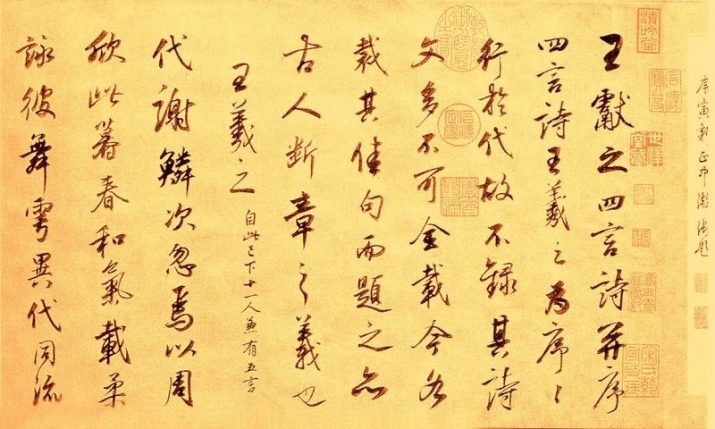 王獻之四言詩并序
四言詩王羲之為序〻
行於代故不錄其詩
文多不可全載今各
裁其佳句而題之亦
古人斷章之義也
王羲之 自此已下十一人兼有五言
代謝鱗次忽焉以周
欣此暮春和氣載柔
詠彼舞雩異代同流